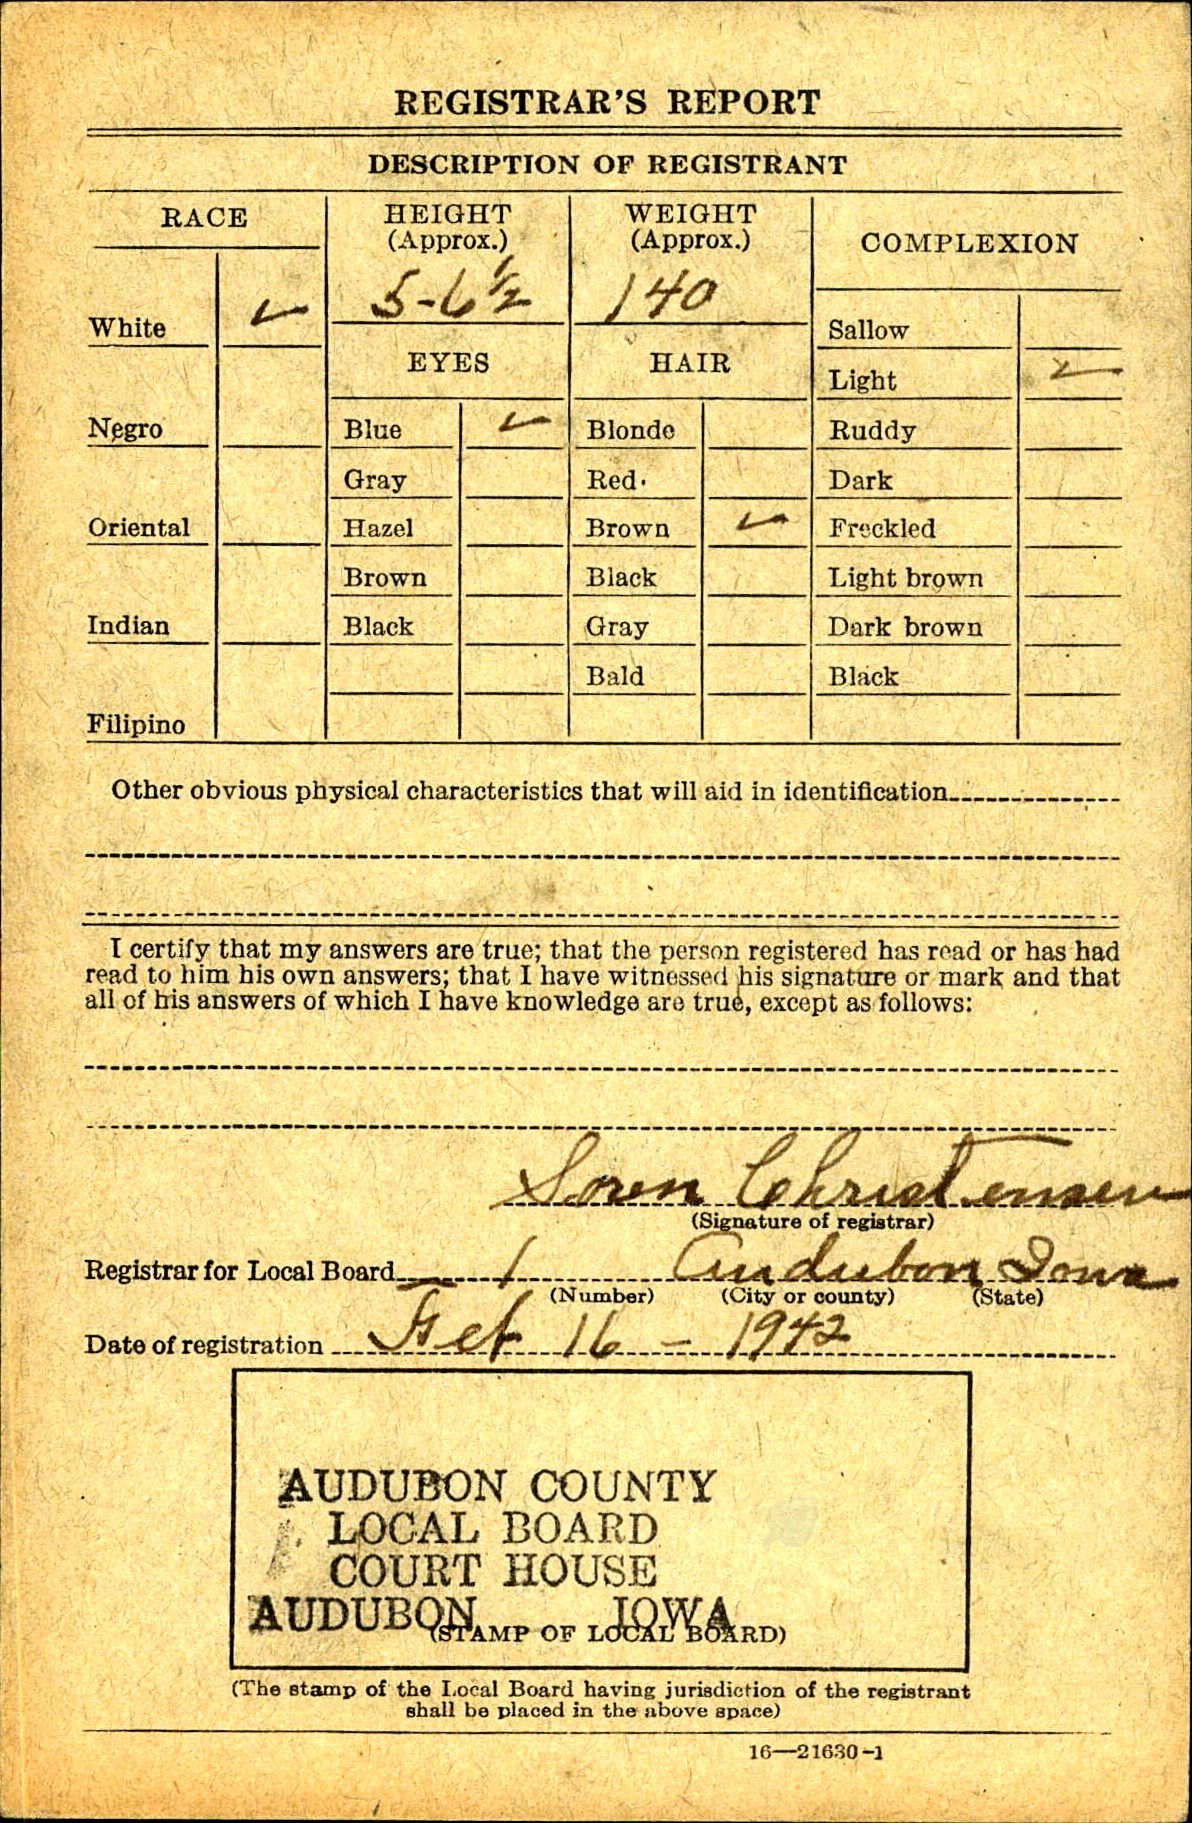 REGISTRAR'S REPORT
DESCRIPTION OF REGISTRANT
RACE
HEIGHT
(Approx.)
WEIGHT
(Approx.)
COMPLEXION
5-6½
140
White ✓
Sallow
EYES
HAIR
Light ✓
Negro
Blue ✓
Blonde
Ruddy
Gray
Red
Dark
Oriental
Hazel
Brown ✓
Freckled
Brown
Black
Light brown
Indian
Black
Gray
Dark brown
Bald
Black
Filipino
Other obvious physical characteristics that will aid in identification
I certify that my answers are true; that the person registered has read or has had
read to him his own answers; that I have witnessed his signature or mark and that
all of his answers of which I have knowledge are true, except as follows:
Soren Christensen
(Signature of registrar)
Registrar for Local Board 1 Audubon Iowa
(Number) (City or county) (State)
Date of registration Feb 16 - 1942
AUDUBON COUNTY
LOCAL BOARD
COURT HOUSE
AUDUBON IOWA
(STAMP OF LOCAL BOARD)
(The stamp of the Local Board having jurisdiction of the registrant
shall be placed in the above space)
16—21630-1